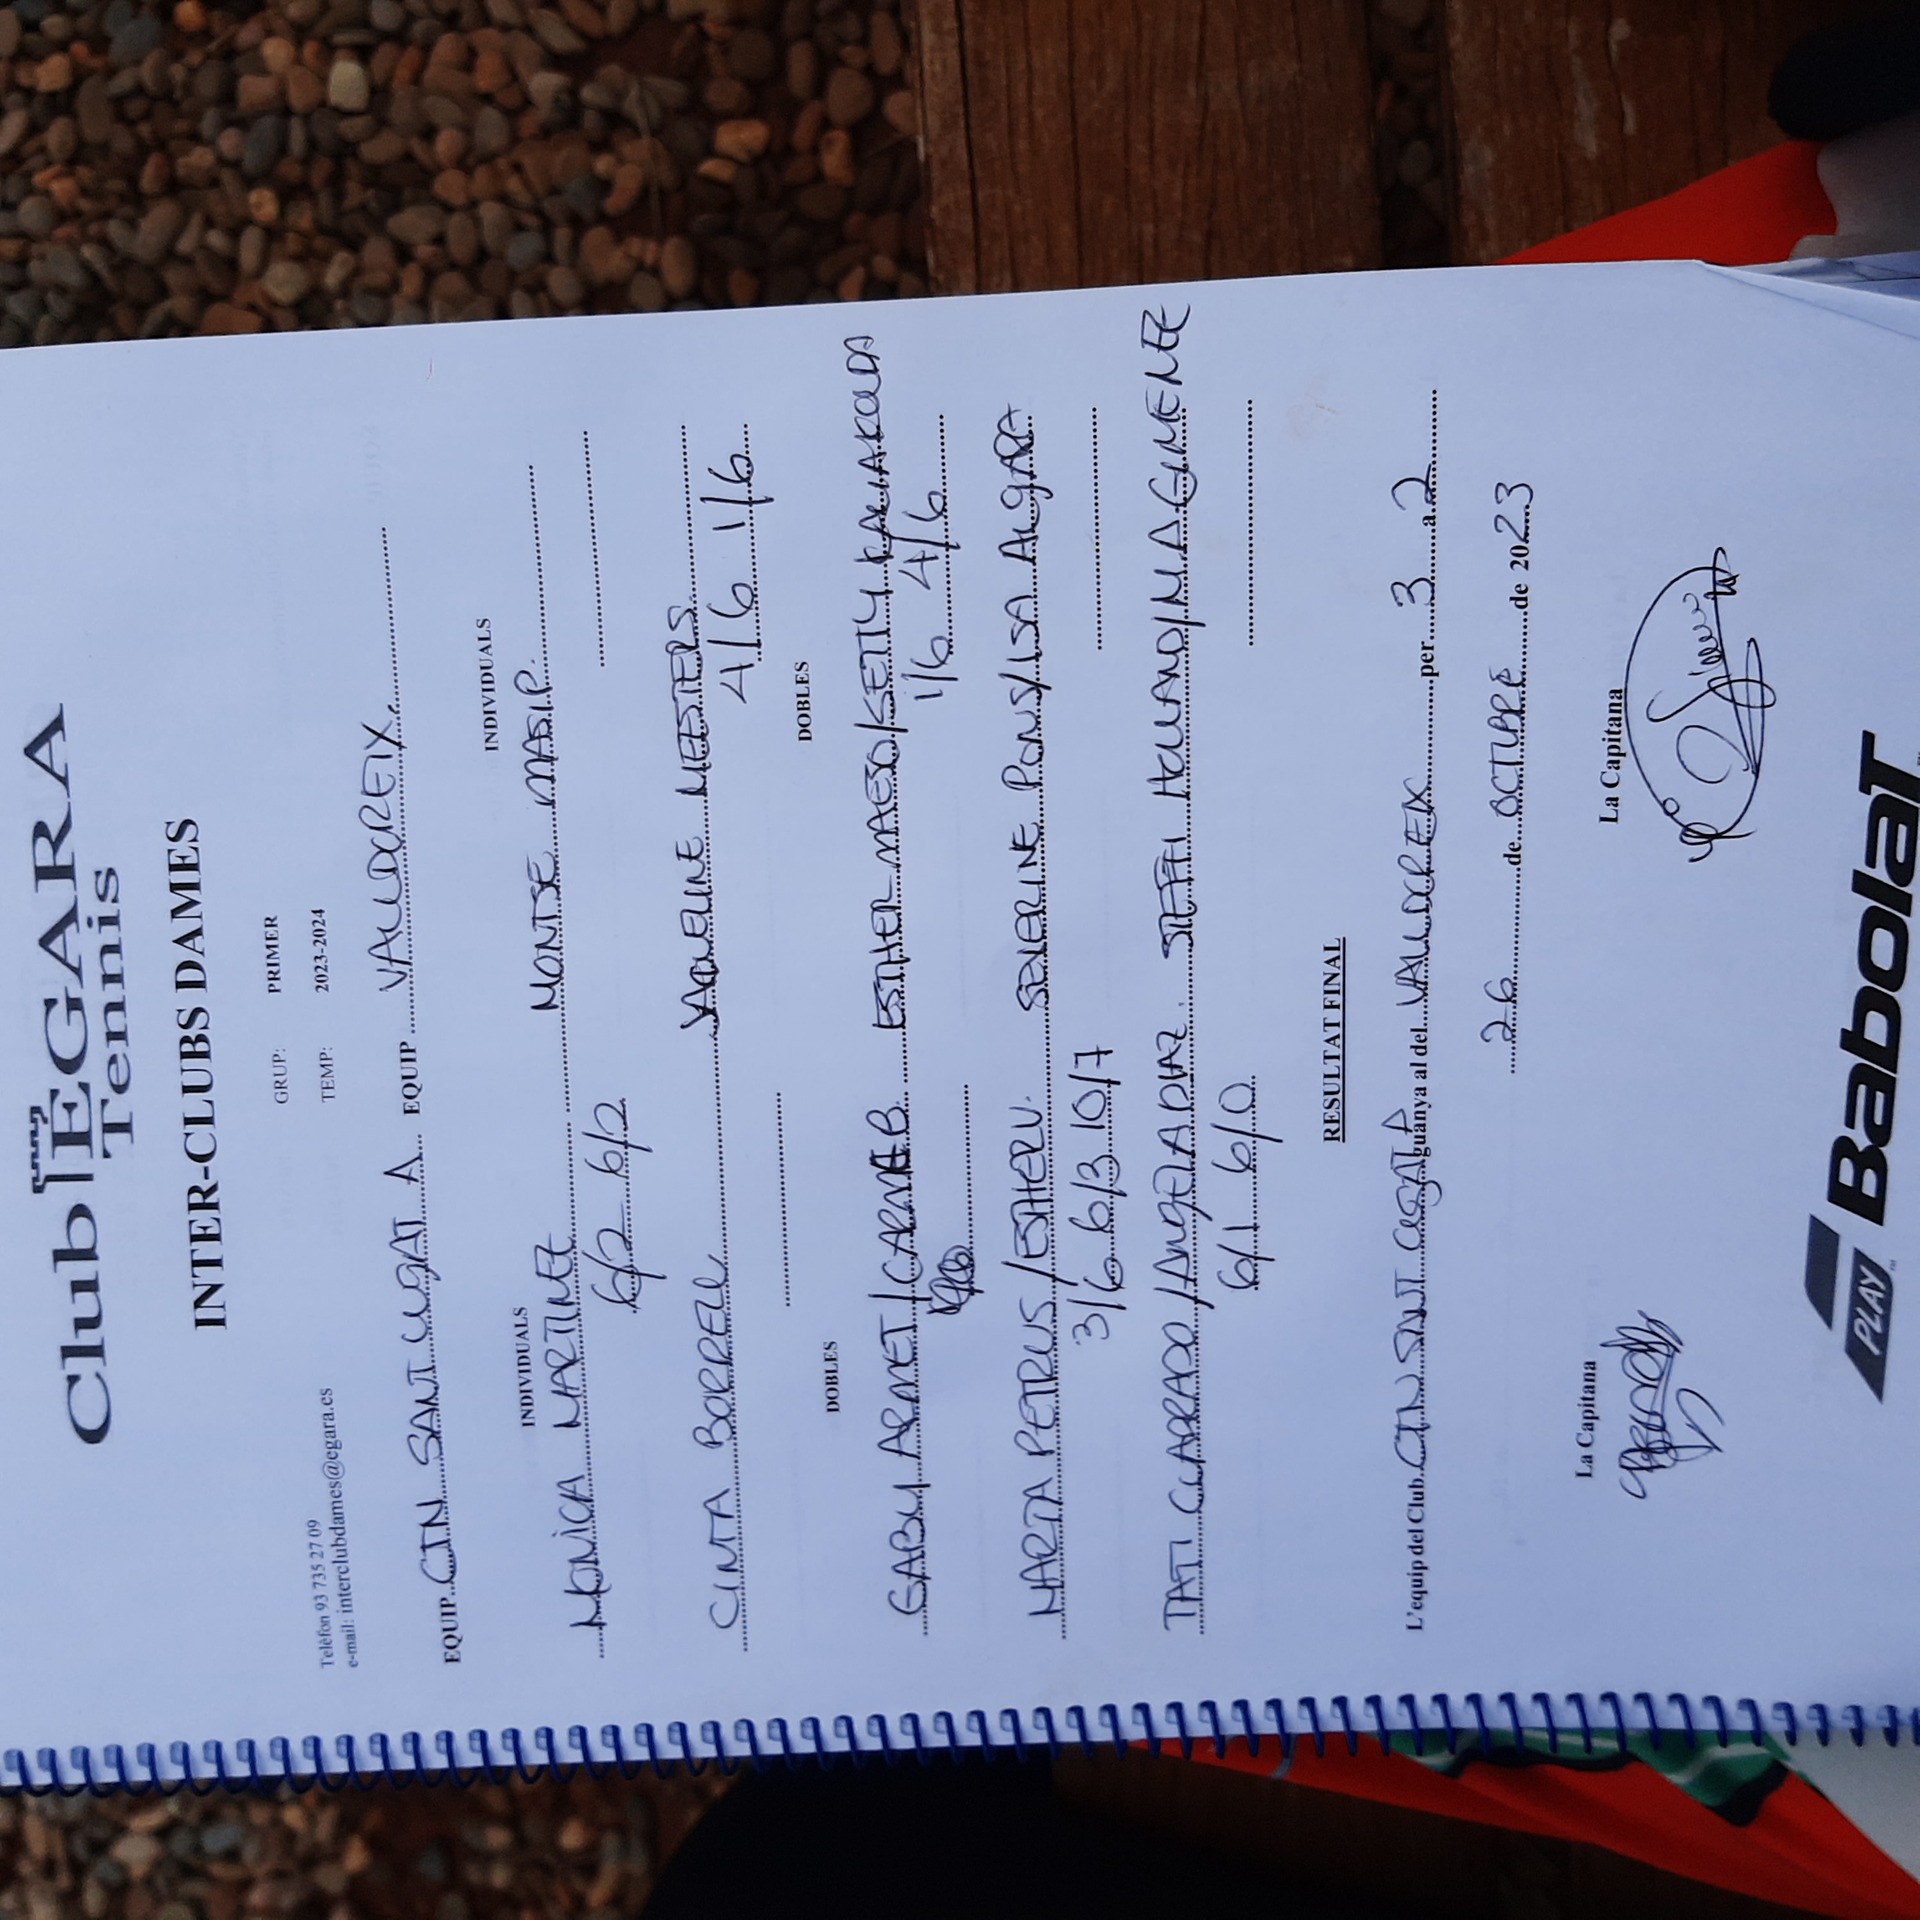 Club EGARA
Tennis
INTER-CLUBS DAMES
GRUP: PRIMER
Telèfon 93 735 27 09 TEMP: 2023-2024
e-mail: interclubdames@egara.es
EQUIP CTN SANT CUGAT A EQUIP VALLDOREIX
INDIVIDUALS INDIVIDUALS
MONICA MARTINEZ MONTSE MASIP.
6/2 6/2
CINTA BORRELL MEESTERS
4/6 1/6
DOBLES DOBLES
GABY ARMET / CARME B. ESTHER MAESO / KETTY
1/6 4/6
MARTA PETRUS / ESTHER V. SEVERINE PONS / ISA ALGARA
3/6 6/3 10/7
TATI CUADRADO / ANGELA DIAZ STEFFI HOLLAND / Mª GIMENEZ
6/1 6/0
RESULTAT FINAL
L'equip del Club CTN SANT CUGAT A guanya al del VALLDOREIX per 3 a 2
26 de OCTUBRE de 2023
La Capitana La Capitana
PLAY Babolat